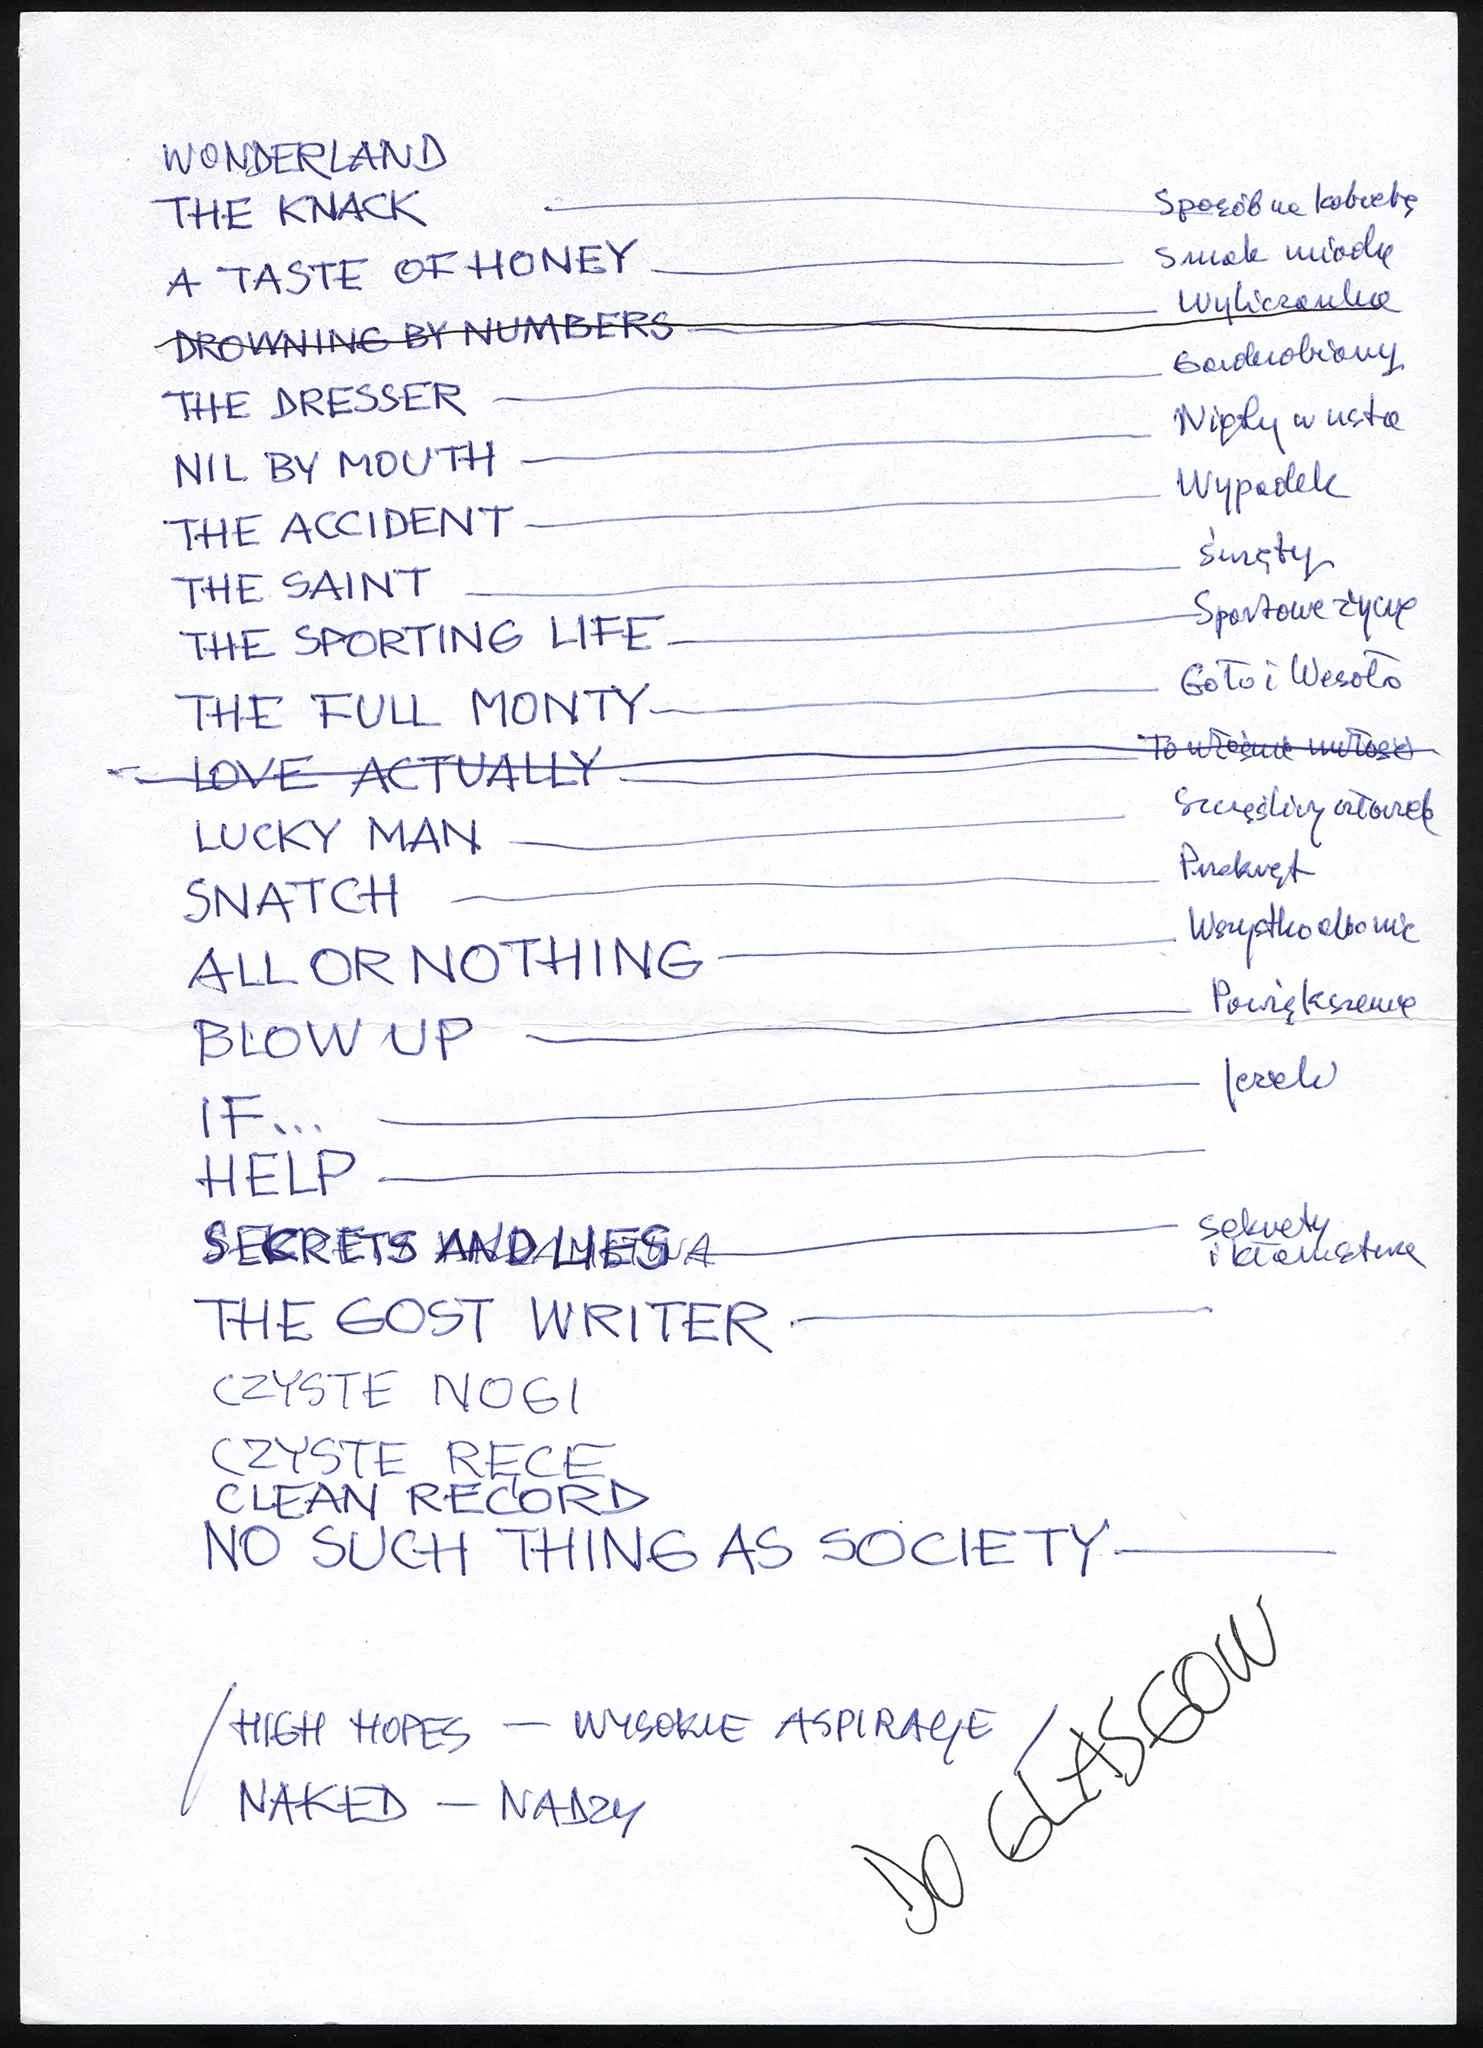 WONDERLAND
THE KNACK — Sposób na kobietę
A TASTE OF HONEY — Smak miodu
DROWNING BY NUMBERS — Wyliczanka
THE DRESSER — Garderobiany
NIL BY MOUTH — Nic doustnie
THE ACCIDENT — Wypadek
THE SAINT — Święty
THE SPORTING LIFE — Sportowe życie
THE FULL MONTY — Goło i Wesoło
LOVE ACTUALLY — To właśnie miłość
LUCKY MAN — Szczęśliwy człowiek
SNATCH — Przekręt
ALL OR NOTHING — Wszystko albo nic
BLOW UP — Powiększenie
IF... — Jeżeli
HELP —
SEKRETS AND LIES — Sekrety
i kłamstwa
THE GOST WRITER —
CZYSTE NOGI
CZYSTE RĘCE
CLEAN RECORD
NO SUCH THING AS SOCIETY —
/ HIGH HOPES — WYSOKIE ASPIRACJE /
NAKED — NADZY
DO GLASGOW